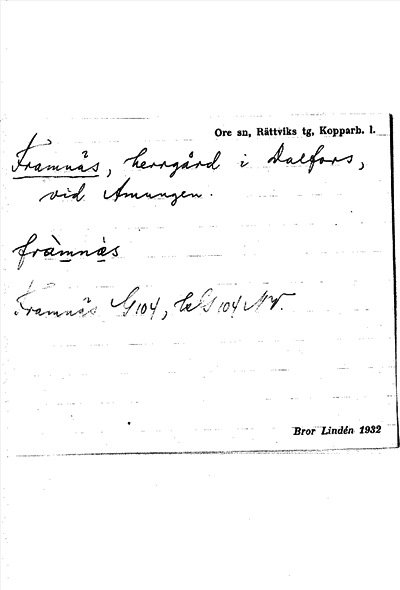 Ore sn, Rättviks tg, Kopparb. l.
Framnäs, herrgård i Dalfors,
vid Amungen.
fràmnä̀s
Framnäs G104, bl 104 NV.
Bror Lindén 1932